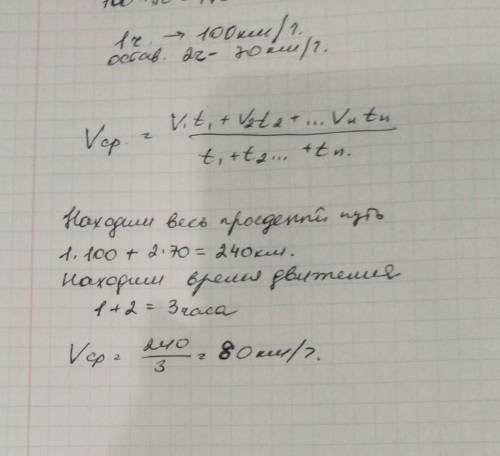 1ч. → 100км/ч.
остав. 2ч - 70км/ч.
Vср. = V₁t₁ + V₂t₂ + ... Vₙtₙ / t₁ + t₂ ... + tₙ.
Находим весь пройденный путь
1·100 + 2·70 = 240км.
Находим время движения
1 + 2 = 3 часа
Vср = 240/3 = 80км/ч.